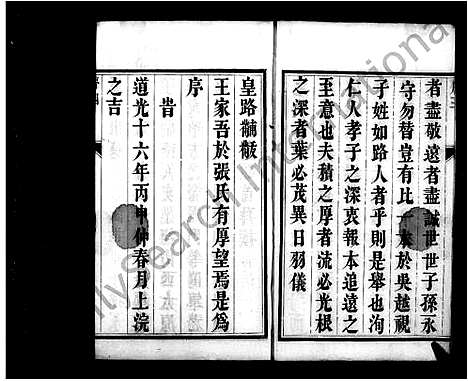 者盡敬遠者盡誠世世子孫永
守勿替豈有比一族於吳越視
子姓如路人者乎則是舉也洵
仁人孝子之深哀報本追遠之
至意也夫積之厚者流必光根
之深者葉必茂異日羽儀
皇路黼黻
王家吾於張氏有厚望焉是爲
序
旹
道光十六年丙申仲春月上浣
之吉